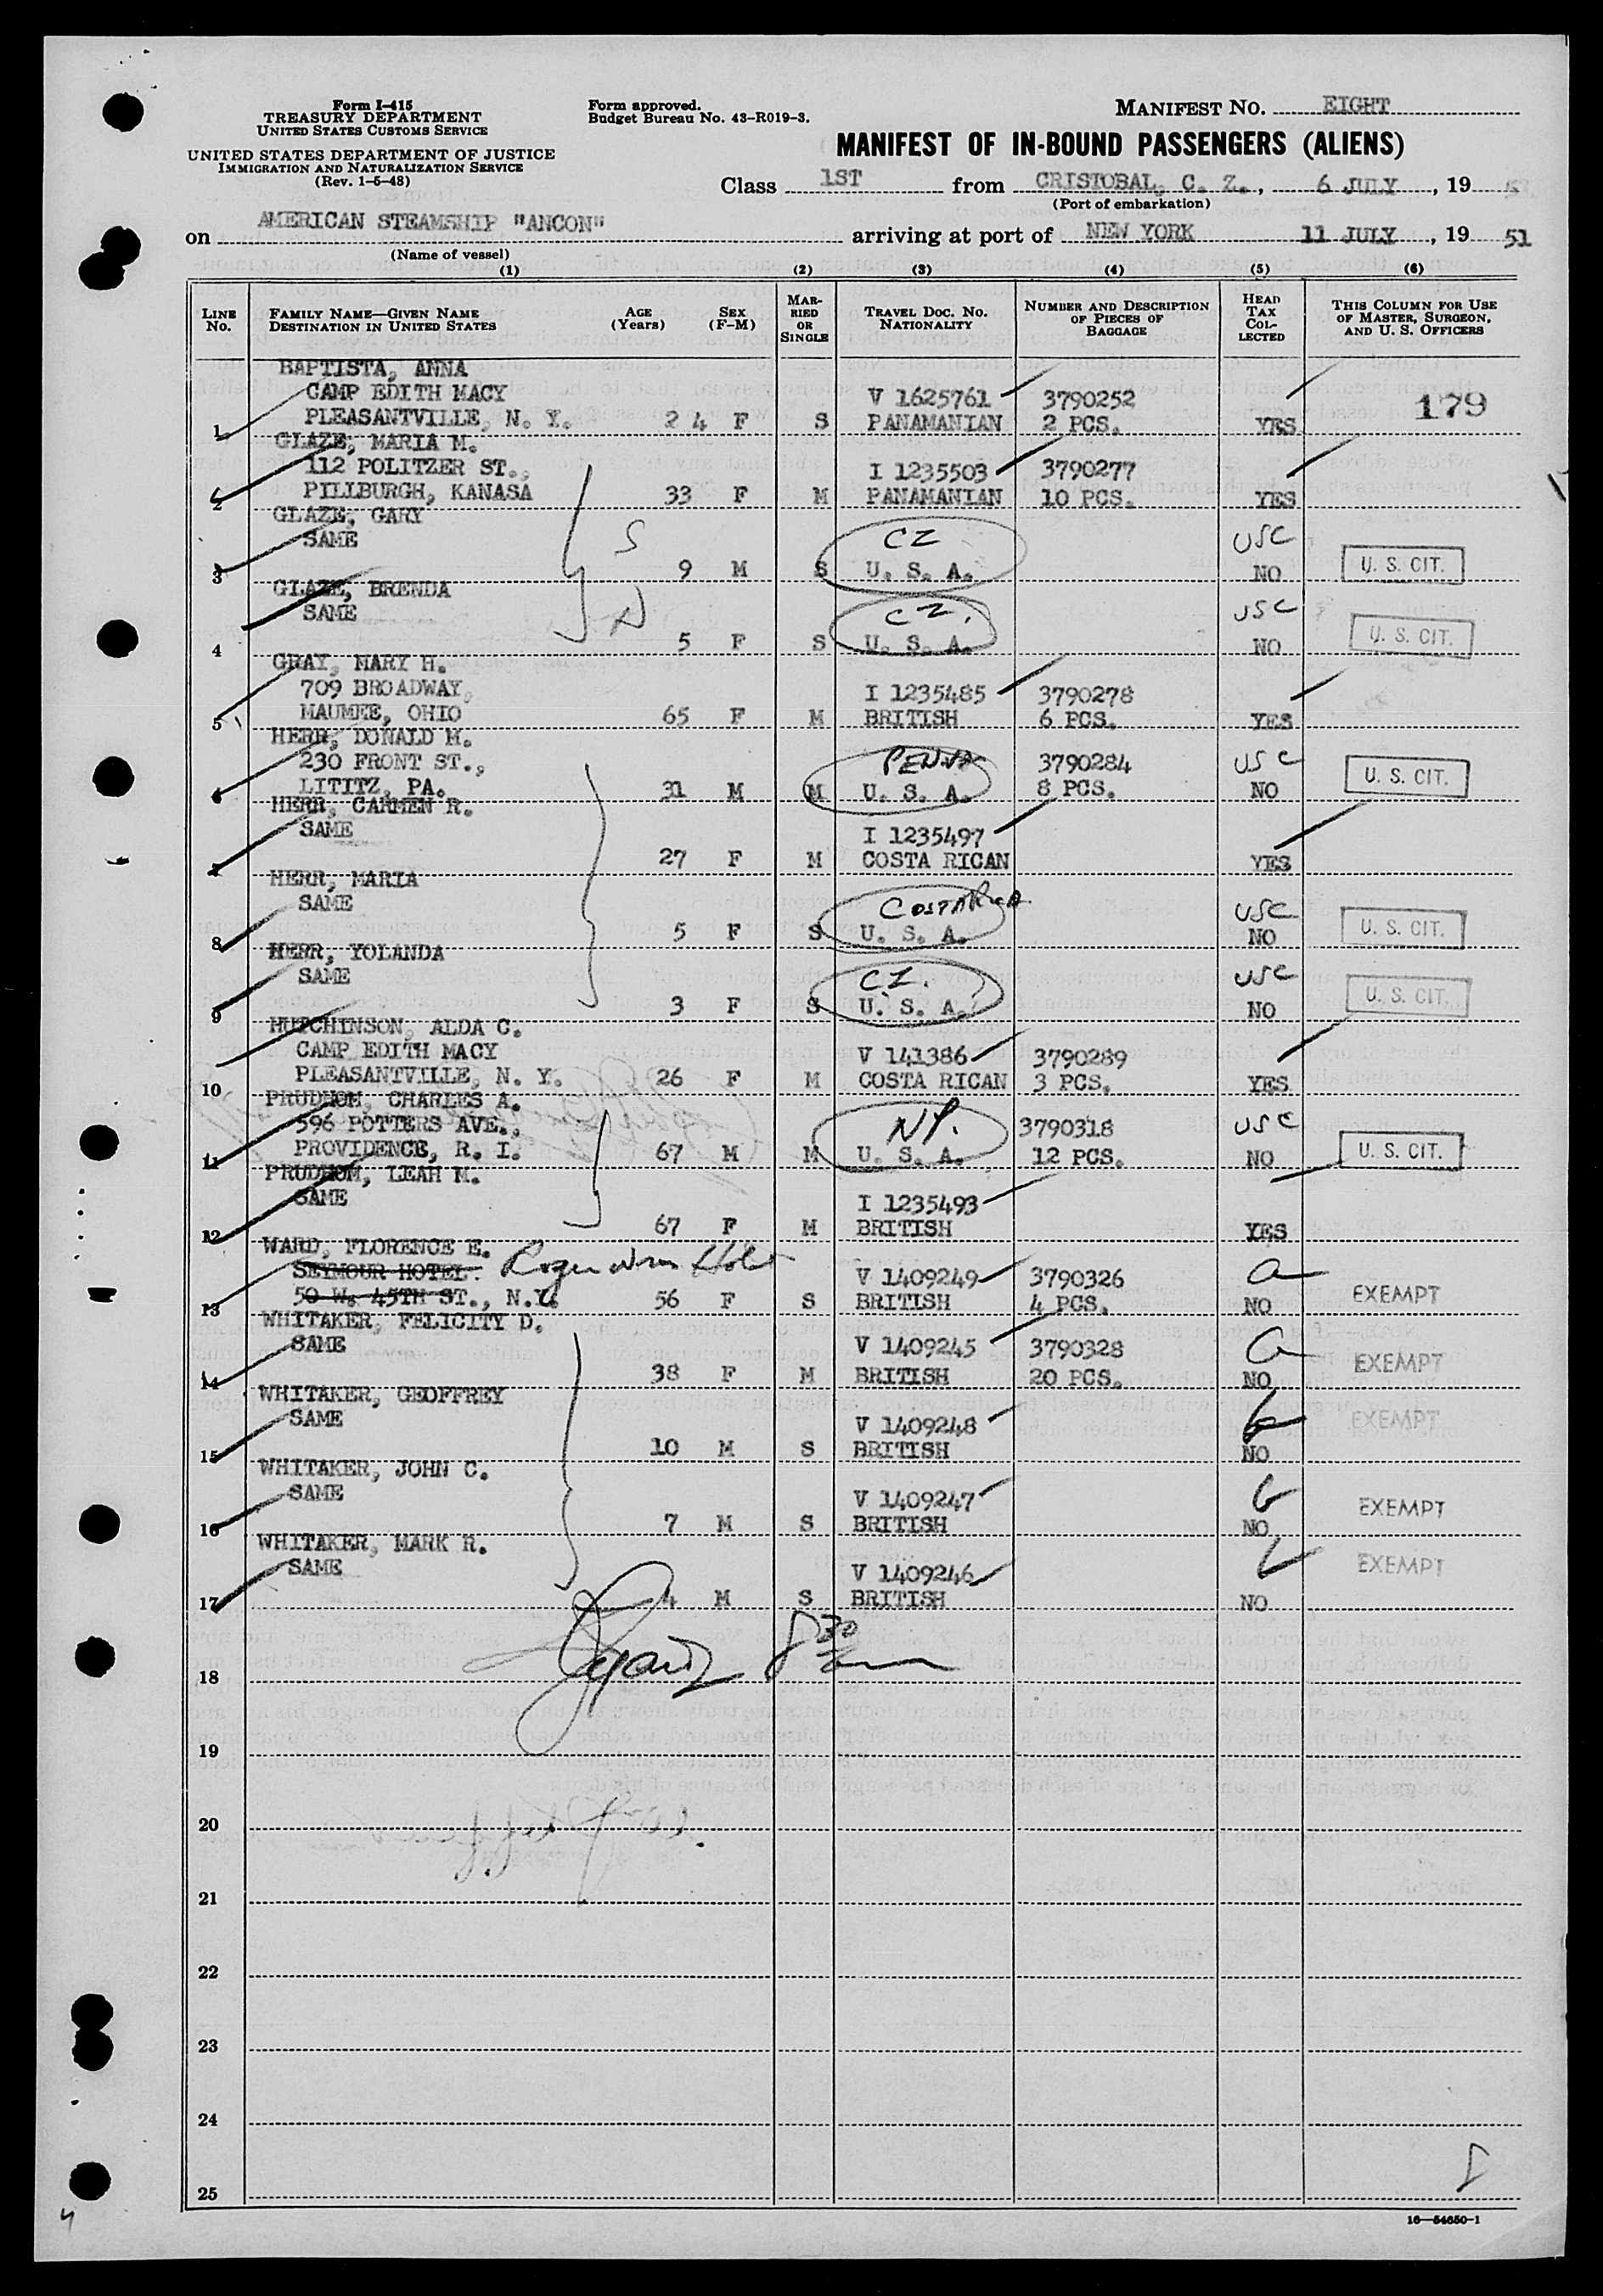 Form I-415
TREASURY DEPARTMENT
UNITED STATES CUSTOMS SERVICE
UNITED STATES DEPARTMENT OF JUSTICE
IMMIGRATION AND NATURALIZATION SERVICE
(Rev. 1-5-48)
Form approved.
Budget Bureau No. 43-R019-3.
MANIFEST NO. EIGHT
MANIFEST OF IN-BOUND PASSENGERS (ALIENS)
Class 1ST from CRISTOBAL, C. Z., 6 JULY, 19
(Port of embarkation)
on AMERICAN STEAMSHIP "ANCON" arriving at port of NEW YORK 11 JULY, 19 51
(Name of vessel)
(1) (2) (3) (4) (5) (6)
LINE No.
FAMILY NAME—GIVEN NAME
DESTINATION IN UNITED STATES
AGE (Years)
SEX (F-M)
MARRIED OR SINGLE
TRAVEL DOC. NO. NATIONALITY
NUMBER AND DESCRIPTION OF PIECES OF BAGGAGE
HEAD TAX COLLECTED
THIS COLUMN FOR USE OF MASTER, SURGEON, AND U. S. OFFICERS
BAPTISTA, ANNA
CAMP EDITH MACY V 1625761 3790252 179
1 PLEASANTVILLE, N. Y. 24 F S PANAMANIAN 2 PCS. YES
GLAZE, MARIA M.
112 POLITZER ST., I 1235503 3790277
2 PILLBURGH, KANASA 33 F M PANAMANIAN 10 PCS. YES
GLAZE, GARY
SAME S CZ USC
3 9 M S U. S. A. NO U. S. CIT.
GLAZE, BRENDA
SAME CZ. USC
4 5 F S U. S. A. NO U. S. CIT.
GRAY, MARY H.
709 BROADWAY, I 1235485 3790278
5 MAUMEE, OHIO 65 F M BRITISH 6 PCS. YES
HERR, DONALD M.
230 FRONT ST., PENNA 3790284 USC
6 LITITZ, PA. 31 M M U. S. A. 8 PCS. NO U. S. CIT.
HERR, CARMEN R.
SAME I 1235497
7 27 F M COSTA RICAN YES
HERR, MARIA
SAME COSTA RICA USC
8 5 F S U. S. A. NO U. S. CIT.
HERR, YOLANDA
SAME CZ. USC
9 3 F S U. S. A. NO U. S. CIT.
HUTCHINSON, ALDA C.
CAMP EDITH MACY V 141386 3790289
10 PLEASANTVILLE, N. Y. 26 F M COSTA RICAN 3 PCS. YES
PRUDHOM, CHARLES A.
596 POTTERS AVE., NY. 3790318 USC
11 PROVIDENCE, R. I. 67 M M U. S. A. 12 PCS. NO U. S. CIT.
PRUDHOM, LEAH M.
SAME I 1235493
12 67 F M BRITISH YES
WARD, FLORENCE E.
SEYMOUR HOTEL. V 1409249 3790326 a
13 50 W. 45TH ST., N.Y. 56 F S BRITISH 4 PCS. NO EXEMPT
WHITAKER, FELICITY D.
SAME V 1409245 3790328
14 38 F M BRITISH 20 PCS. NO EXEMPT
WHITAKER, GEOFFREY
SAME V 1409248 EXEMPT
15 10 M S BRITISH NO
WHITAKER, JOHN C.
SAME V 1409247 EXEMPT
16 7 M S BRITISH NO
WHITAKER, MARK R.
SAME V 1409246 EXEMPT
17 4 M S BRITISH NO
830
18
19
20
21
22
23
24
25
16—54650-1